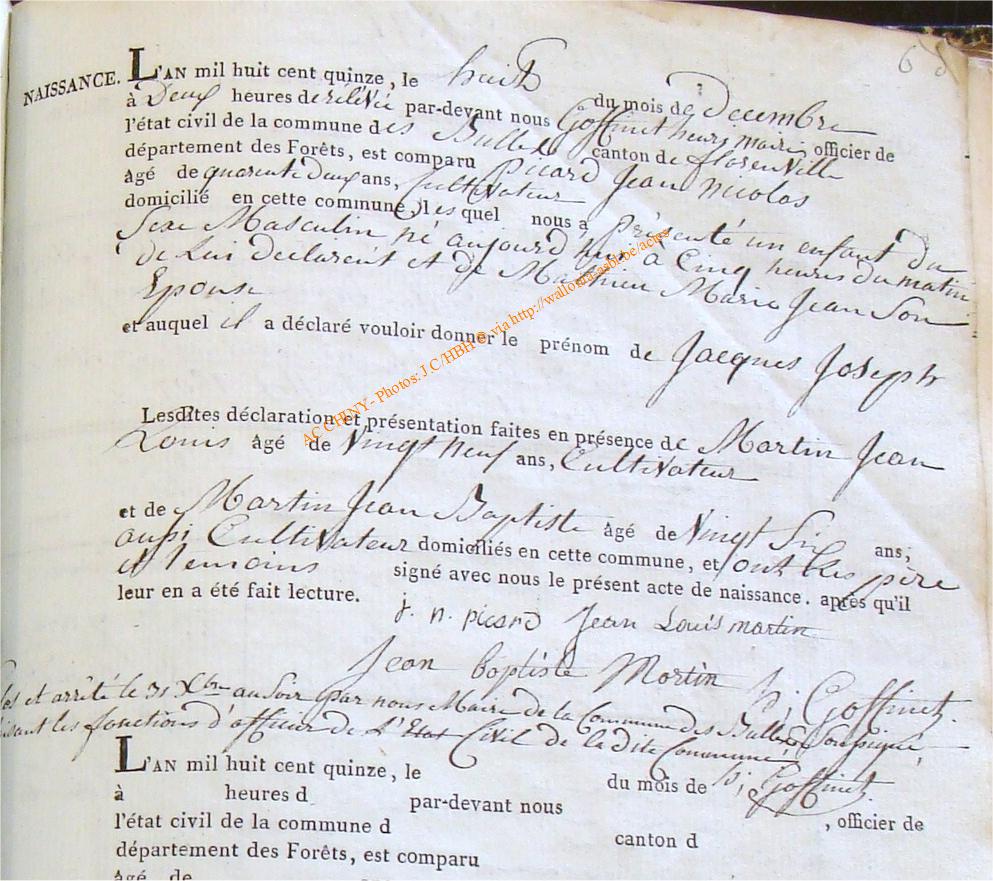 68
NAISSANCE. L'AN mil huit cent quinze, le huit du mois de Decembre
à Deux heures de rélévée par-devant nous Goffinet henri maire, officier de
l'état civil de la commune des Bulles canton de florenville
département des Forêts, est comparu Picard Jean nicolas
âgé de quarente deux ans, Cultivateur
domicilié en cette commune, lesquel nous a présenté un enfant du
Sexe Masculin né aujourd'hui à Cinq heures du matin
de Lui déclarent et de Mathieu Marie Jean Son
Epouse
et auquel il a déclaré vouloir donner le prénom de Jacques Joseph
Lesdites déclaration et présentation faites en présence de Martin Jean
Louis âgé de Vingt neuf ans, Cultivateur
et de Martin Jean Baptiste âgé de Vingt Six ans;
aussi Cultivateur domiciliés en cette commune, et ont les père
et temoins signé avec nous le présent acte de naissance. après qu'il
leur en a été fait lecture.
j. n. picard Jean Louis martin
Jean baptiste Martin h; Goffinet.
et arrêté le 31 Xbre au Soir par nous Maire de la Commune des Bulles Soussigné,
les fonctions d'officier de L'Etat Civil de la dite Commune
h; Goffinet.
L'AN mil huit cent quinze, le du mois de
à heures d par-devant nous , officier de
l'état civil de la commune d canton d
département des Forêts, est comparu
âgé de
AC CHINY - Photos: J.C/HBH © via http://wallonia.asbl.be/actes